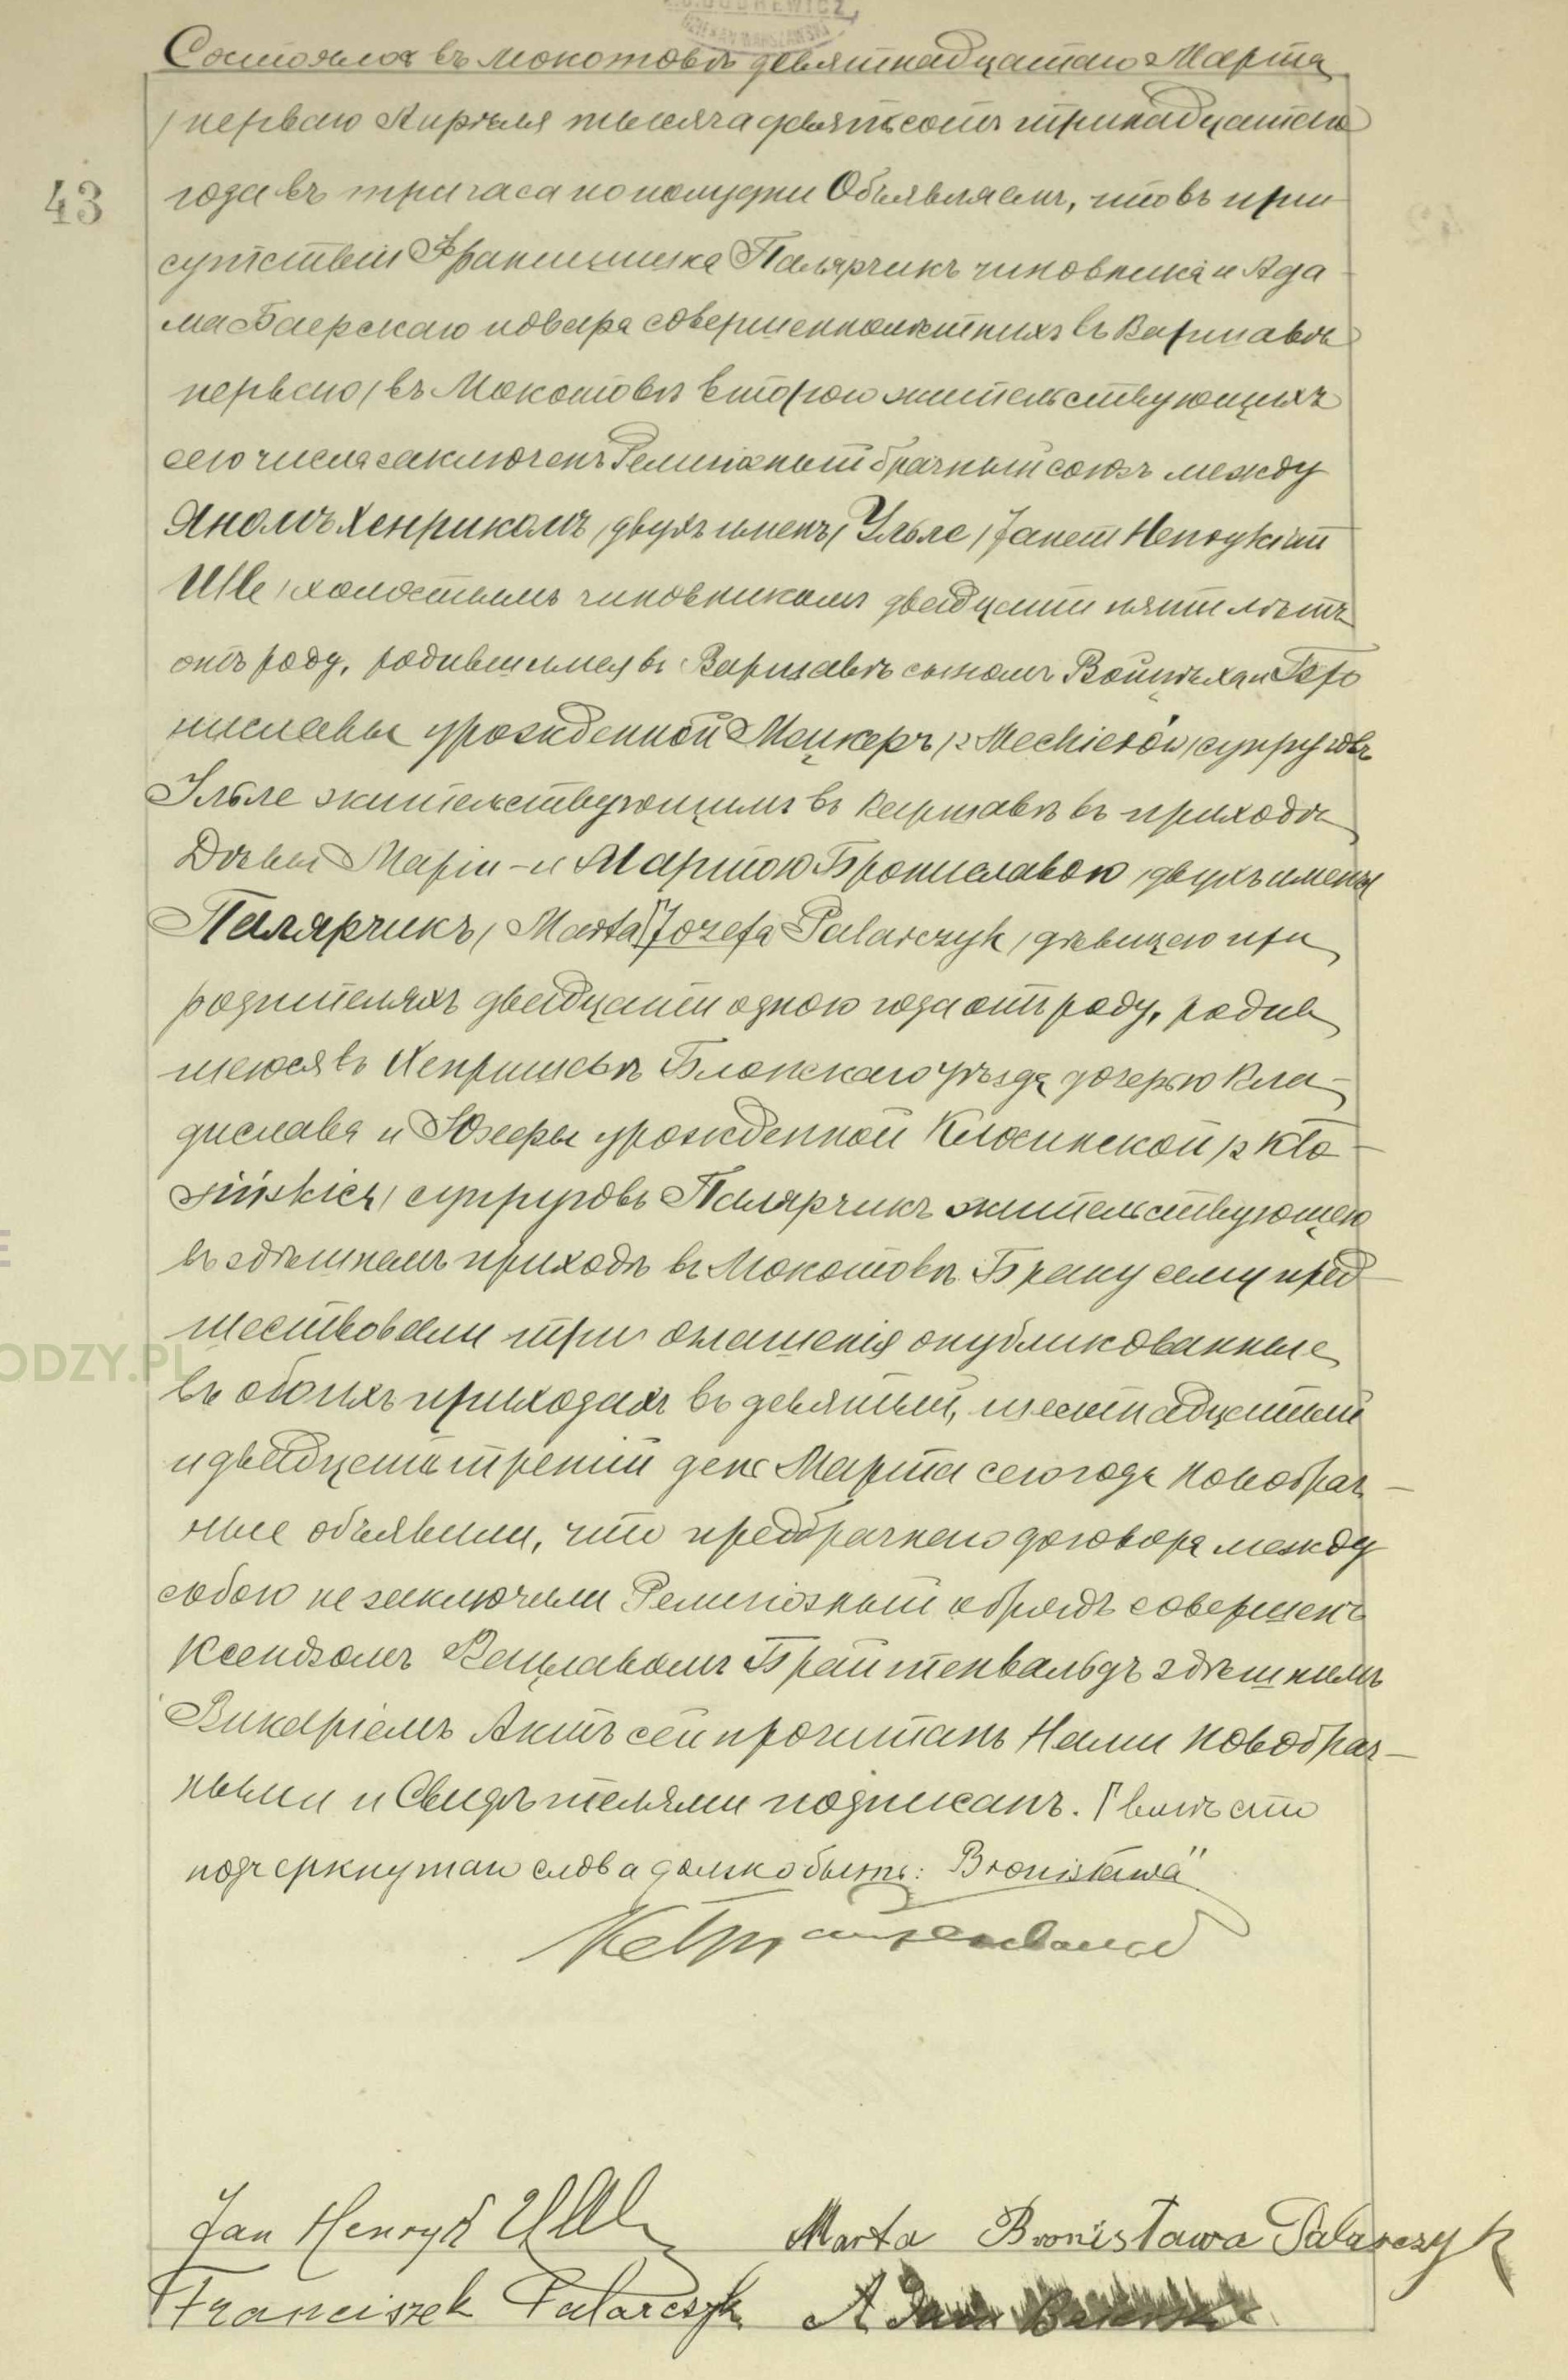 Состоялось въ Мокотовѣ девятнадцатаго Марта
/перваго Апрѣля тысяча девятьсотъ тринадцатаго
43
года въ три часа пополудни Объявляемъ, что въ при
сутствіи Францишка Палярчикъ чиновника и Ада
ма Баерскаго повара совершеннолѣтнихъ въ Варшавѣ
перваго, въ Мокотовѣ второго жительствующихъ
сего числа заключенъ Религіозный брачный союзъ между
Яномъ Хенрикомъ /двухъ именъ/ Улле /Janem Henrykiem
Ulle/ холостымъ чиновникомъ двадцати пяти лѣтъ
отъ роду, родившимся въ Варшавѣ сыномъ Войцѣха и Бро
ниславы урожденной Мецкеръ /z Mechierów/ супруговъ
Улле жительствующимъ въ Варшавѣ въ приходѣ
Дѣвы Маріи – и Мартою Брониславою /двухъ именъ/
Палярчикъ, /Marta Jozefa Palarczyk/ дѣвицею при
родителяхъ двадцати одного года отъ роду, родив
шеюся въ Хенришевѣ Блонскаго уѣзда дочерью Вла-
дислава и Юзефы урожденной Клосинской /z Kło-
sińskich/ супруговъ Палярчикъ жительствующею
въ здѣшнемъ приходѣ въ Мокотовѣ. Браку сему пред-
шествовали три оглашенія опубликованные
въ обоихъ приходахъ въ девятый, шестнадцатый
и двадцать третій день Марта сего года Новобрач-
ные объявили, что предбрачнаго договора между
собою не заключили Религіозный обрядъ совершенъ
Ксендзомъ Вацлавомъ Брайтенвальдъ здѣшнимъ
Викаріемъ Актъ сей прочитанъ Нами Новобрач-
ными и Свидѣтелями подписанъ. Г вмѣсто
подчеркнутаго слова должно быть: Bronisława"
Jan Henryk Ulle
Marta Bronisława Palarczyk
Franciszek Palarczyk
Adam Baierski